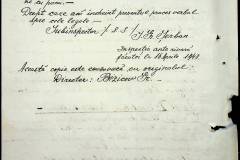 Drept care am încheiat prezentul proces verbal
spre cele legale.—
Subinspector / ss / I. Gr. Șerban
Inspecția
făcută la 18 Aprilie
Această copie este conformă cu originalul:
Director: